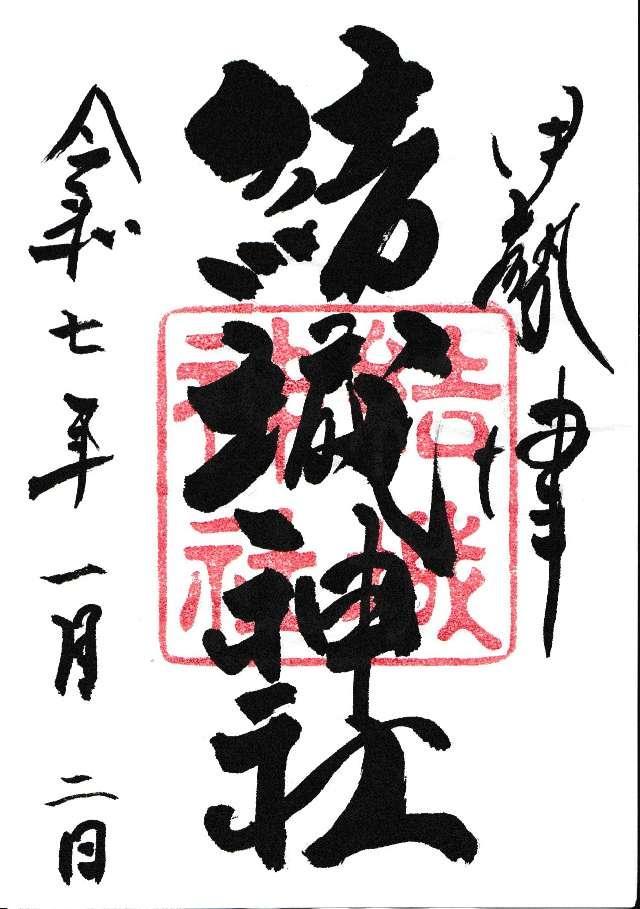 伊勢津
結城神社
結城
神社
令和七年一月二日